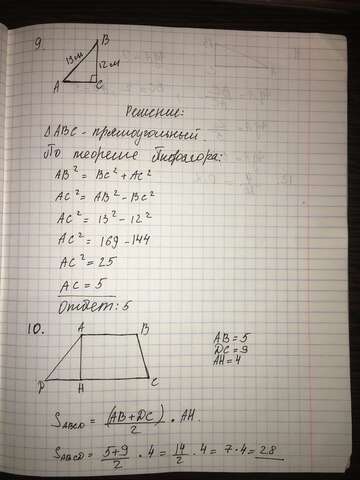 9.
B
13м
12м
A
C
Решение:
△ABC - прямоугольный
По теореме Пифагора:
AB² = BC² + AC²
AC² = AB² - BC²
AC² = 13² - 12²
AC² = 169 - 144
AC² = 25
AC = 5
Ответ: 5
10.
A B
D H C
AB = 5
DC = 9
AH = 4
S_ABCD = (AB+DC)/2 · AH
S_ABCD = 5+9/2 · 4 = 14/2 · 4 = 7·4 = 28